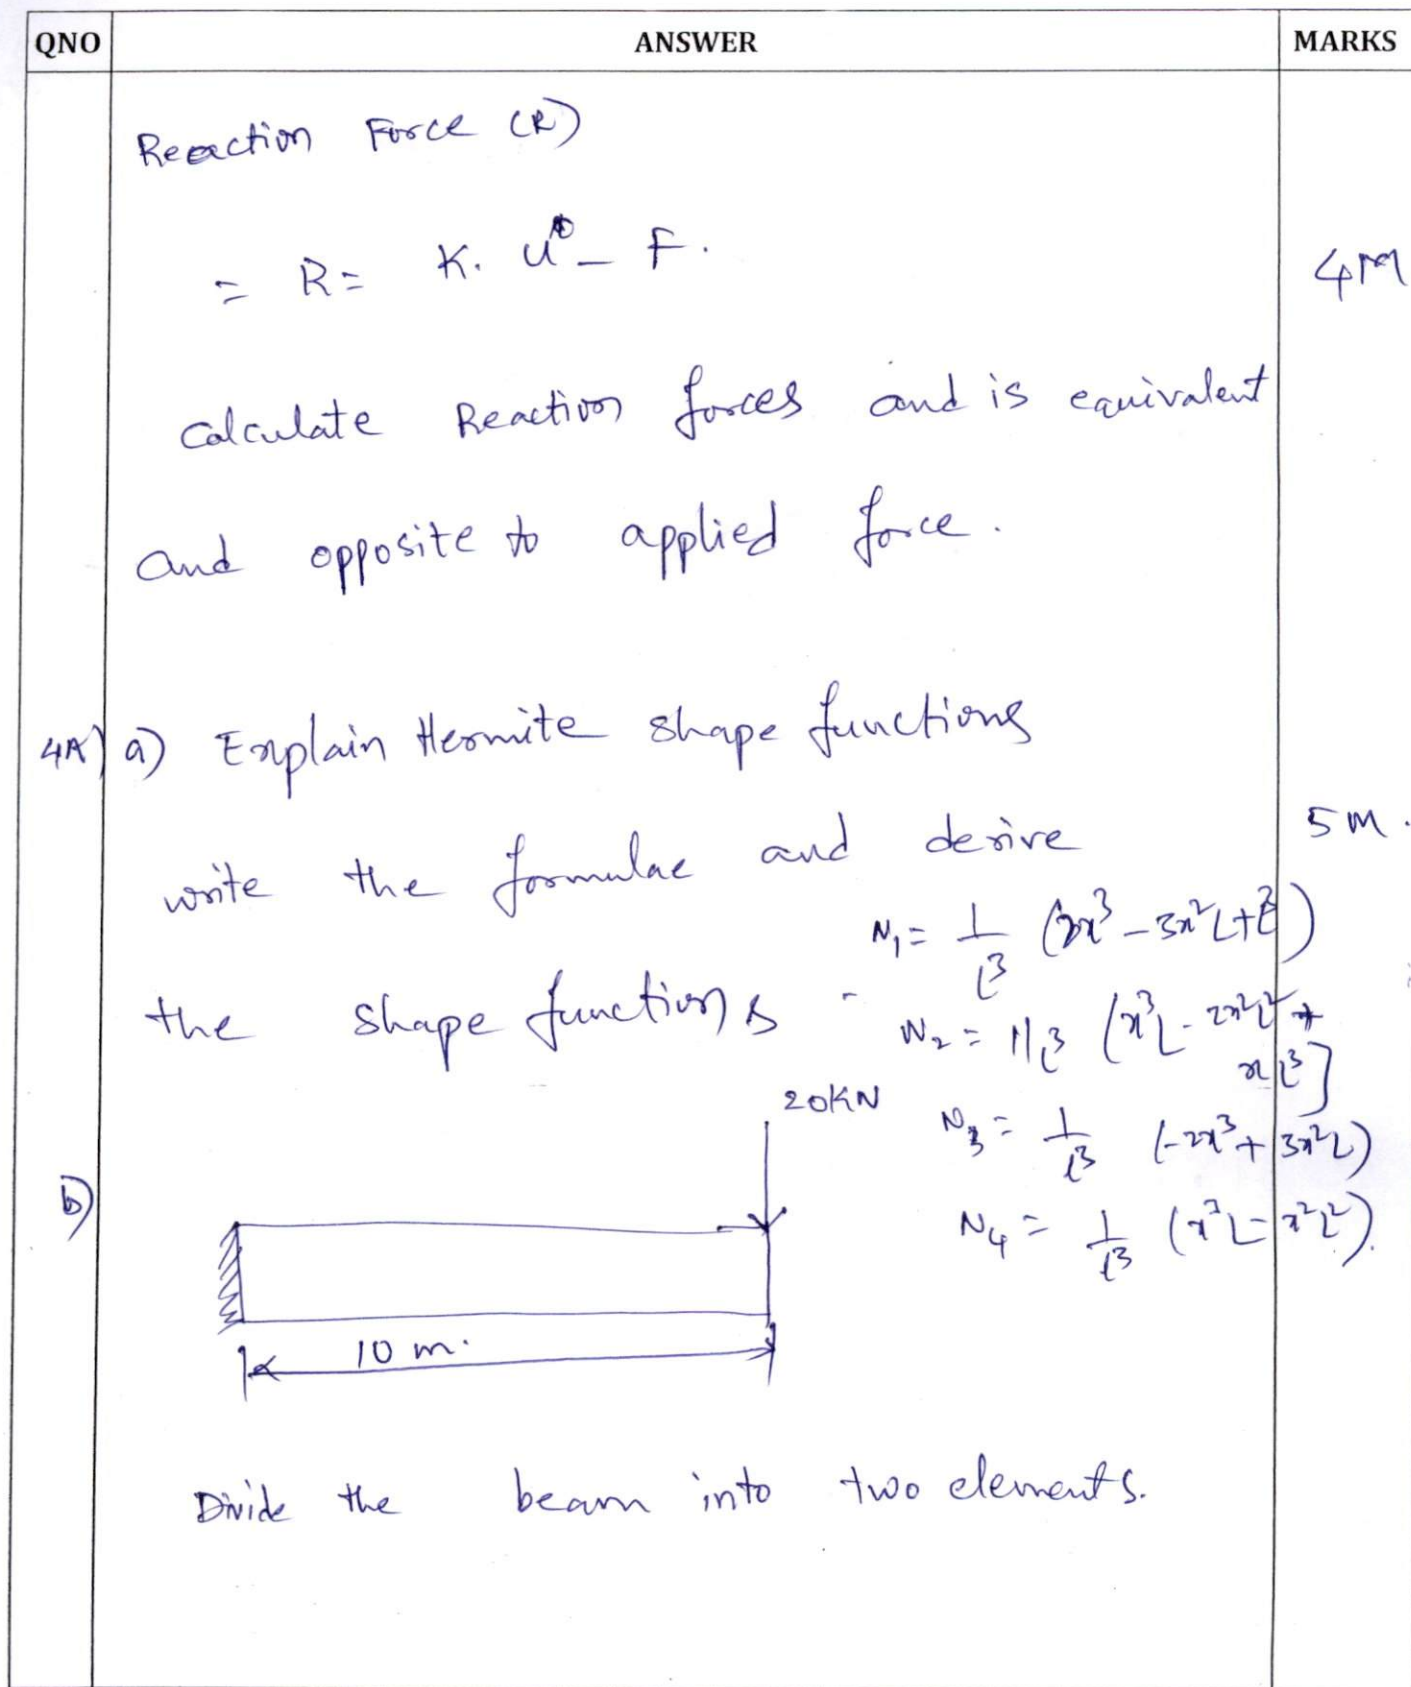 QNO ANSWER MARKS
Reaction Force (R)
= R = K. U - F. 4M
Calculate Reaction forces and is equivalent
and opposite to applied force.
4A) a) Explain Hermite shape functions
write the formulae and derive 5M.
the shape functions
N₁ = 1/L³ (2x³ - 3x²L + L³)
N₂ = 1/L³ (x³L - 2x²L² +
xL³]
N₃ = 1/L³ (-2x³ + 3x²L)
N₄ = 1/L³ (x³L - x²L²).
20KN
b)
10 m.
Divide the beam into two elements.